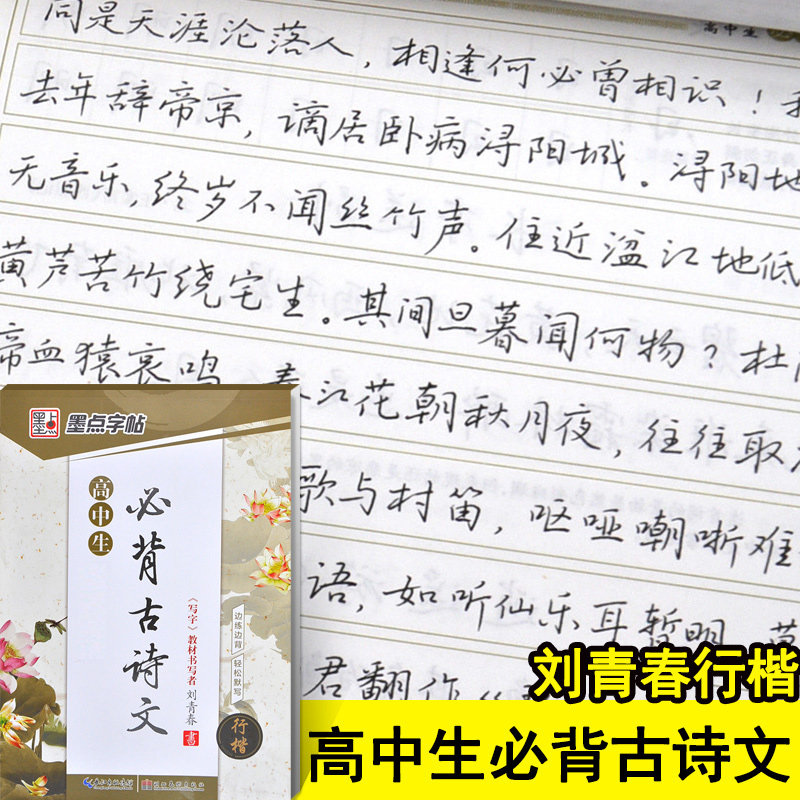 高中生
同是天涯沦落人，相逢何必曾相识！
去年辞帝京，谪居卧病浔阳城。浔阳地
无音乐，终岁不闻丝竹声。住近湓江地低
黄芦苦竹绕宅生。其间旦暮闻何物？杜
啼血猿哀鸣 春江花朝秋月夜，往往取
歌与村笛，呕哑嘲哳难
语，如听仙乐耳暂明 莫
君翻作
墨点
墨点字帖
高中生
必背古诗文
《写字》教材书写者 刘青春 書
边练边背
轻松默写
行楷
刘青春行楷
高中生必背古诗文